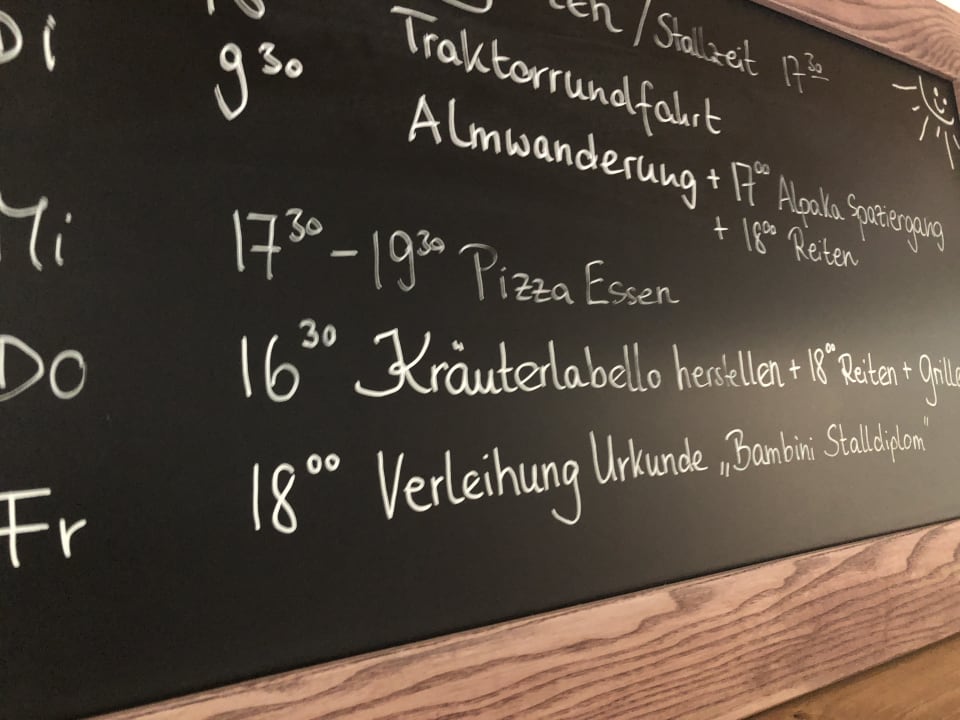 / Stallzeit 17 30
Di Traktorrundfahrt
9 30 Almwanderung + 17 00 Alpaka Spaziergang
+ 18 00 Reiten
Mi 17 30 - 19 30 Pizza Essen
Do 16 30 Kräuterlabello herstellen + 18 00 Reiten + Grille
Fr 18 00 Verleihung Urkunde „Bambini Stalldiplom"